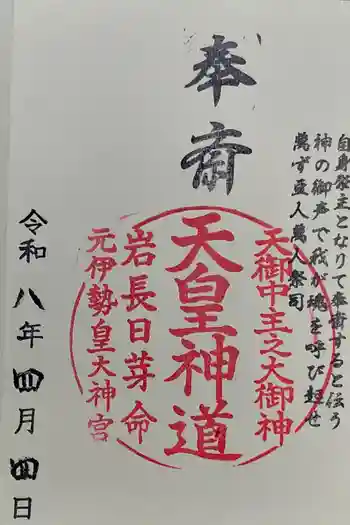 自身祭主となりて奉斎すると伝う
神の御声で我が魂を呼び起せ
萬ず亜人萬人祭司
奉斎
天御中主之大御神
天皇神道
岩長日芽命
元伊勢皇大神宮
令和八年四月四日